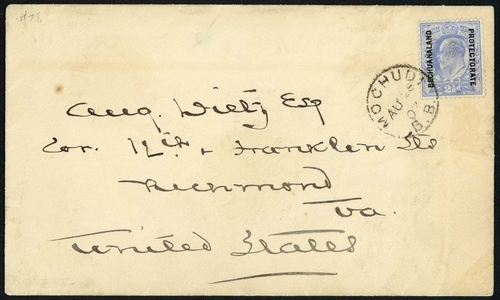 BECHUANALAND PROTECTORATE
2½d
MOCHUDI
AU
B.B.
Aug. Dietz Esq
Cor. 12th & Franklin Sts
Richmond
Va.
United States